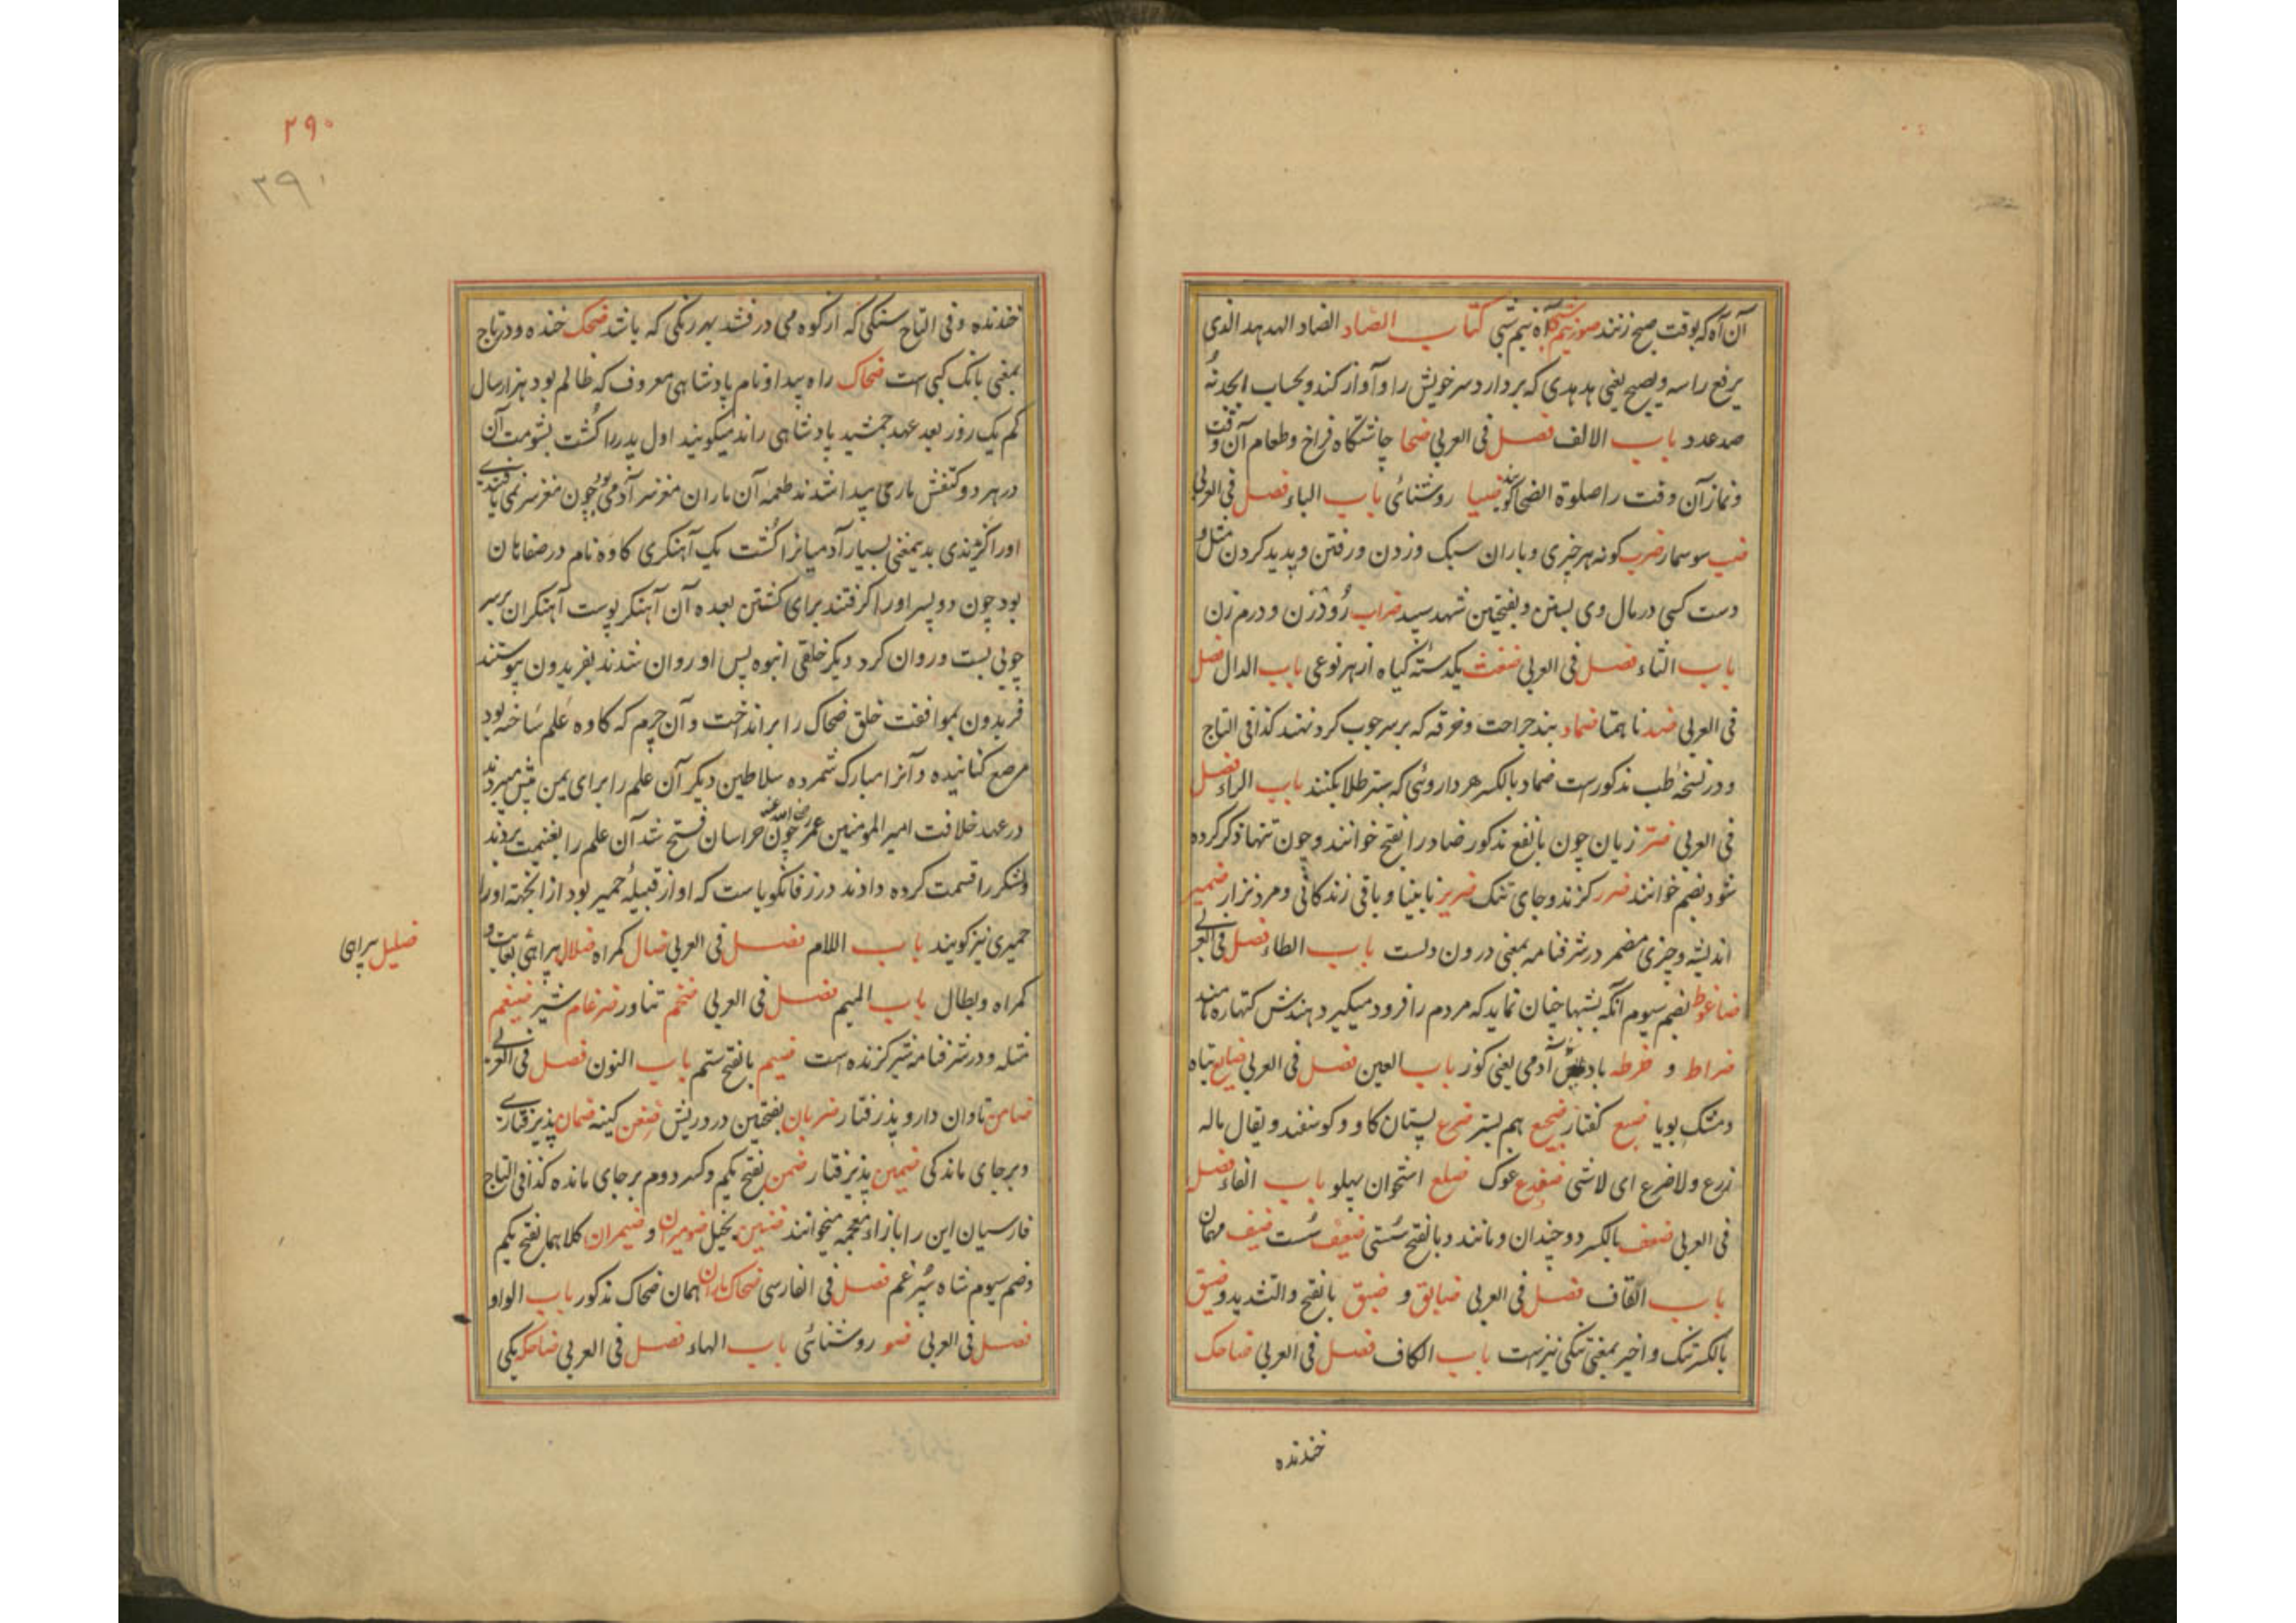 آن آه که بوقت صبح زنند صور نیم آه نیم شبی کتاب الضاد الضاد الهدهد الذی
یرفع راسه ویصیح یعنی هدهدی که بردارد سر خویش را و آواز کند و بحساب ابجد نه
صد عدد باب الالف فصل فی العربی ضحا چاشتگاه فراخ و طعام آن وقت
و نماز آن وقت را صلوة الضحا گویند ضیا روشنائی باب الباء فصل فی العربی
ضب سوسمار ضرب گونه هر چیزی و باران سبک و زدن و رفتن و پدید کردن مثل و
دست کسی در مال وی بستن و بفتحتین شهد سپید ضراب رودزن و درم زن
باب الثاء فصل فی العربی ضغث یکدسته گیاه از هر نوعی باب الدال فصل
فی العربی ضد ناهمتا ضماد بند جراحت و خرقه که بر سر چوب کرد نهند کذا فی التاج
و در نسخه طب مذکورست ضماد بالکسر هر داروئی که ستبر طلا بکنند باب الراء فصل
فی العربی ضر زیان چون بانفع مذکور ضاد را بفتح خوانند و چون تنها ذکر کرده
شود بضم خوانند ضرر گزند و جای تنگ ضریر نابینا و باقی زندگانی و مرد نزار ضمیر
اندیشه و چیزی مضمر در شرفنامه بمعنی درون دلست باب الطاء فصل فی العربی
ضاغوط بضم سیوم آنکه بشبها چنان نماید که مردم را فرود میگیرد هندش کتهاره نامند
ضراط و ضرطه باد آدمی یعنی گوز باب العین فصل فی العربی ضایع تباه
و مشک بویا ضبع کفتار ضجیع هم بستر ضرع پستان گاو و گوسفند و یقال ماله
زرع ولا ضرع ای لاشی ضفدع غوک ضلع استخوان پهلو باب الفاء فصل
فی العربی ضعف بالکسر دو چندان و مانند و بالفتح سستی ضعیف سست ضیف مهمان
باب القاف فصل فی العربی ضایق و ضیق بالفتح والتشدید و ضیق
بالکسر تنگ و اخیر بمعنی تنگی نیزست باب الکاف فصل فی العربی ضاحک
خندنده
۲۹۰
۲۹۱
خندنده و فی التاج سنگی که از کوه می درفشد بهر رنگی که باشد ضحک خنده و در تاج
بمعنی بانگ کپی است ضحاک راه پیدا و نام پادشاهی معروف که ظالم بود هزار سال
کم یک روز بعد عهد جمشید پادشاهی راند میگویند اول پدر را کشت بشومت آن
در هر دو کتفش ماری پیدا شدند طعمه آن ماران مغز سر آدمی بود چون مغز سر نمی یافتندی
او را گزندی بدیمعنی بسیار آدمیانرا کشت یک آهنگری کاوه نام در صفاهان
بود چون دو پسر او را گرفتند برای کشتن بعده آن آهنگر پوست آهنگران بر سر
چوبی بست و روان کرد دیگر خلقی انبوه پس او روان شدند بفریدون پیوستند
فریدون بموافقت خلق ضحاک را برانداخت و آن چرم که کاوه علم ساخته بود
مرصع کنانیده و آنرا مبارک شمرده سلاطین دیگر آن علم را برای یمن پیش میبردند
در عهد خلافت امیر المومنین عمر رضی الله عنه چون خراسان فتح شد آن علم را بغنیمت بردند
و لشکر را قسمت کرده دادند در زفانگویاست که او از قبیله حمیر بود از انجهته او را
حمیری نیز گویند باب اللام فصل فی العربی ضال گمراه ضلال بیراهی بغایت و
ضلیل بیراهی
گمراه و بطال باب المیم فصل فی العربی ضخم تناور ضرغام شیر ضیغم
مثله و در شرفنامه شیر گزنده است ضیم بالفتح ستم باب النون فصل فی العربی
ضامن تاوان دار و پذرفتار ضربان بفتحتین درد ریش ضغن کینه ضمان پذیرفتاری
و بر جای ماندگی ضمین پذیرفتار ضمن بفتح یکم و کسر دوم بر جای مانده کذا فی التاج
فارسیان این را بازاء معجمه میخوانند ضنین بخیل ضومران و ضیمران کلاهما بفتح یکم
و ضم سیوم شاه سپرغم فصل فی الفارسی ضحاک ماران همان ضحاک مذکور باب الواو
فصل فی العربی ضو روشنائی باب الهاء فصل فی العربی ضاحکه یکی